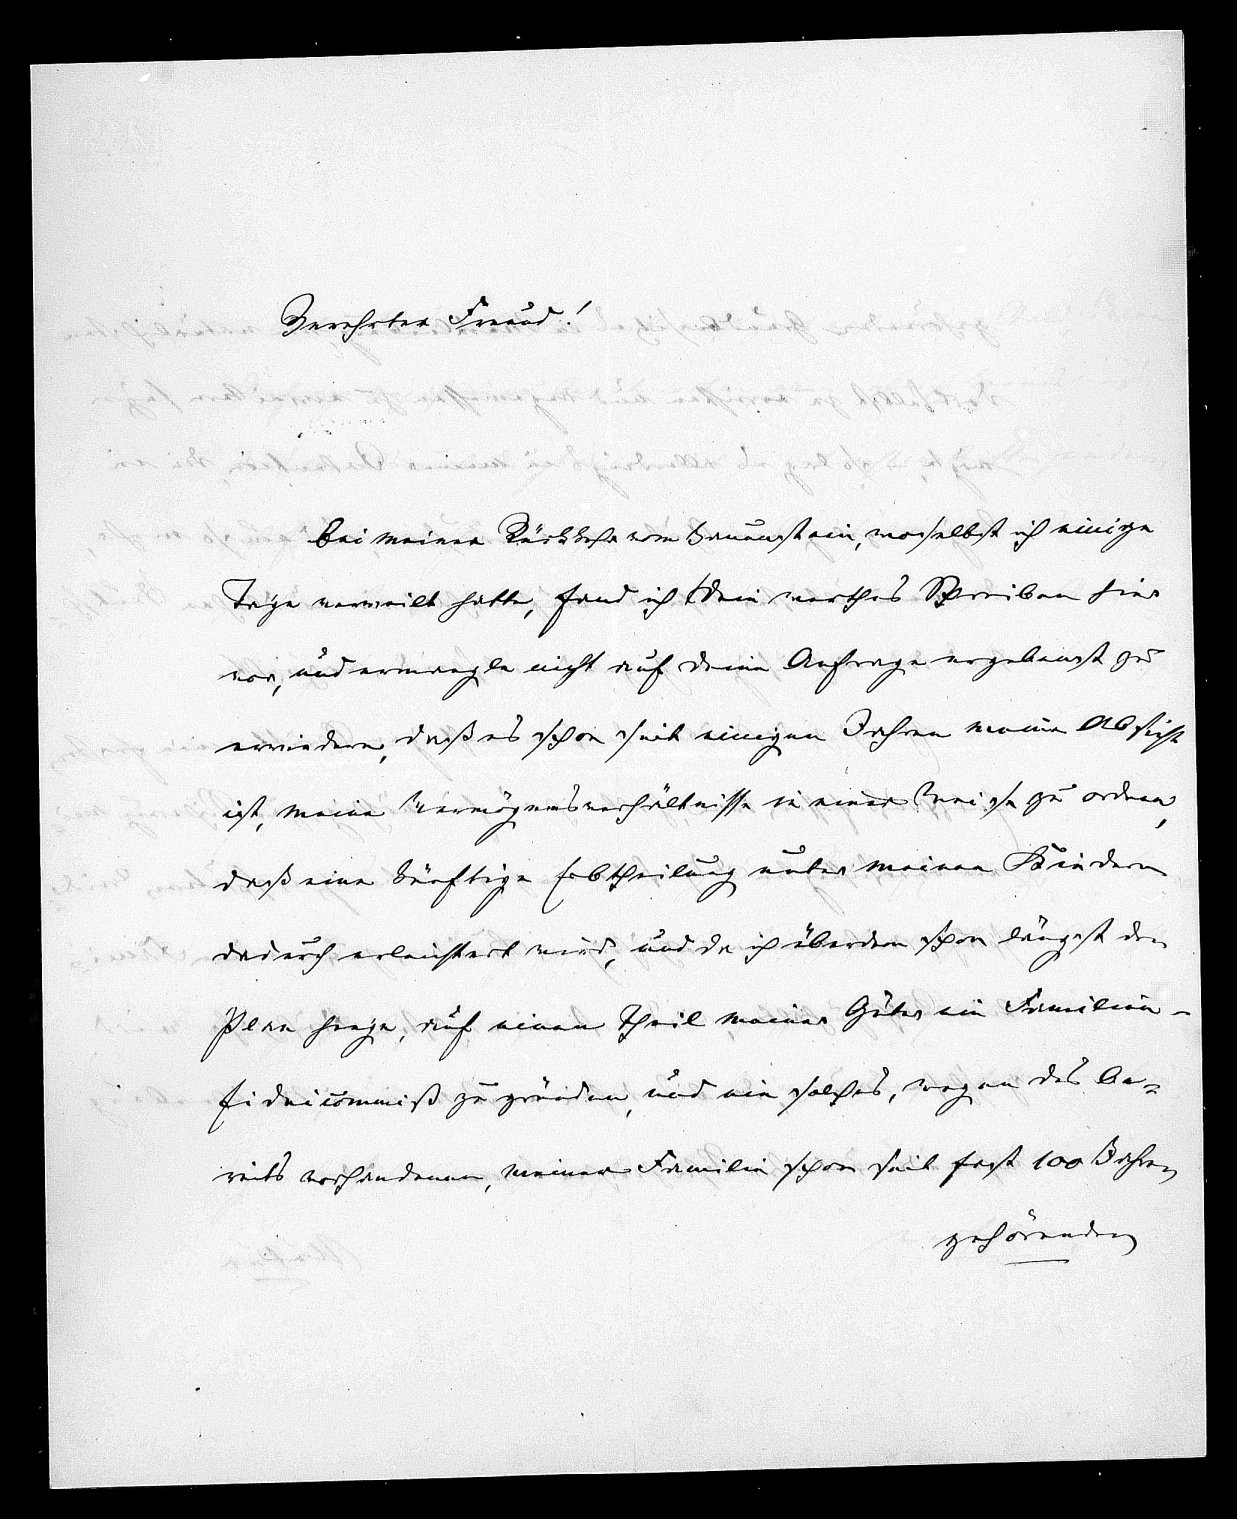 Verehrter Freund!
Bei meiner Rückkehr vom, woselbst ich einige
Tage verweilt hatte, fand ich Dein werthes Schreiben hier
vor, und ermangle nicht auf Deine Anfrage ergebenst zu
erwiedern, daß es schon seit einigen Jahren meine Absicht
ist, meine Vermögensverhältnisse in einer Weise zu ordnen,
daß eine künftige Erbtheilung unter meinen Kindern
dadurch erleichtert wird, und da ich überdem schon längst den
Plan hege, auf einen Theil meiner Güter ein Familien-
fideicommiß zu gründen, und ein solches, wegen des be-
reits vorhandenen, meiner Familie schon seit fast 100 Jahren
gehörenden